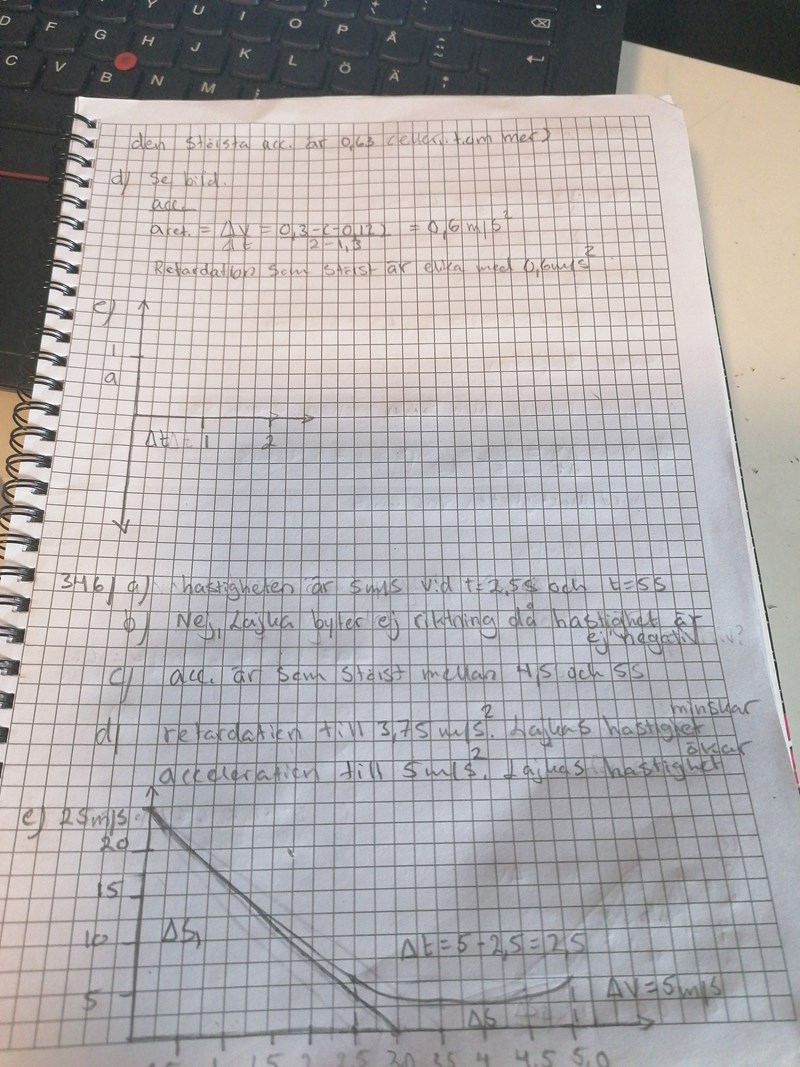 D F G H J K L Ö Ä
Y U I O P Å
C V B N M
den största acc. är 0,63 (eller t.om mer)
d) Se bild.
acc.
aret. = ΔV = 0,3-(-0,12) = 0,6 m/s²
Δt 2-1,3
Retardation som störst är cirka med 0,6m/s²
e)
1
a
Δt 1 2
346) a) hastigheten är 5m/s vid t=2,5s och t=5s
b) Nej, Lajka byter ej riktning då hastighet är
ej negativ
c) acc. är som störst mellan 4,5 och 5s
minskar
d) retardation till 3,75 m/s². Lajkas hastighet
ökar
acceleration till 5m/s². Lajkas hastighet
e) 25m/s
20
15
10 ΔS₁ Δt=5-2,5=2,5
5 ΔS ΔV=5m/s
1 1,5 2 2.5 3.0 3.5 4 4.5 5.0